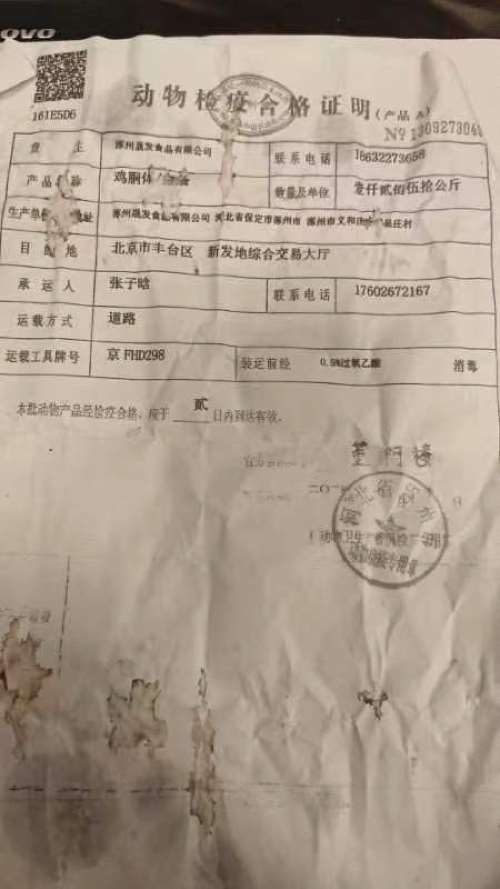 OVO
161E5D6
动物检疫合格证明(产品 A)
货 主 涿州晟发食品有限公司 联系电话 18632273658
产品名称 鸡胴体 数量及单位 壹仟贰佰伍拾公斤
生产单位 地址 涿州晟发食品有限公司 河北省保定市涿州市 涿州市义和庄 庄村
目的地 北京市丰台区 新发地综合交易大厅
承运人 张子晗 联系电话 17602672167
运载方式 道路
运载工具牌号 京 FHD298 装运前经 0.5%过氧乙酸 消毒
本批动物产品经检疫合格，应于 贰 日内到达有效。
官方
河北省涿州